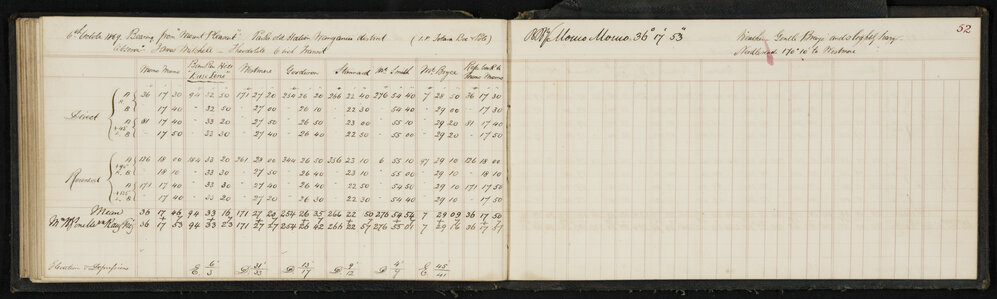 6th October 1869. Bearing from "Mount Pleasant" Park's old Station Wanganui district (I.P. Tolaria Rec & File)
Observer Mr Mitchell - Theodolite 6 inch Transit
R.W. Momo Momo. 36° 17' 53"
Wind Gentle Breeze and slightly hazy.
170° 10' to Westmere
52
Momo Momo Westmere Gordwon Stannard Mt Smith Mt Bryce Reps back to Momo Momo
Direct
A 36 17 30 94 32 50 171 27 20 254 26 20 266 22 40 276 54 40 7 28 50 36 17 30
B " 17 40 " 32 50 " 27 00 " 26 10 " 22 30 " 54 40 " 29 00 " 17 30
A 81 17 40 " 33 20 " 27 50 " 26 50 " 23 00 " 55 10 " 29 20 81 17 40
+45° B " 17 50 " 33 30 " 27 40 " 26 40 " 22 30 " 55 10 " 29 20 " 17 50
Reversed
A 126 18 00 184 33 20 261 28 00 344 26 50 356 23 10 6 55 10 97 29 10 126 18 00
+90° B " 18 10 " 33 20 " 27 50 " 26 40 " 23 10 " 55 10 " 29 10 " 18 10
A 171 17 40 " 33 30 " 27 40 " 26 40 " 22 50 " 54 50 " 29 10 171 17 50
+135° B " 17 50 " 33 20 " 27 20 " 26 30 " 22 40 " 54 40 " 29 10 " 17 50
Mean 36 17 46 94 33 16 171 27 20 254 26 35 266 22 50 276 54 54 7 29 09 36 17 50
36 17 53 94 33 23 171 27 27 254 26 42 266 22 57 276 55 01 7 29 16 36 17 57
Elevation & Depressions E 6/3 D 31/33 D 13/17 D 9/12 D 4/7 E 45/41